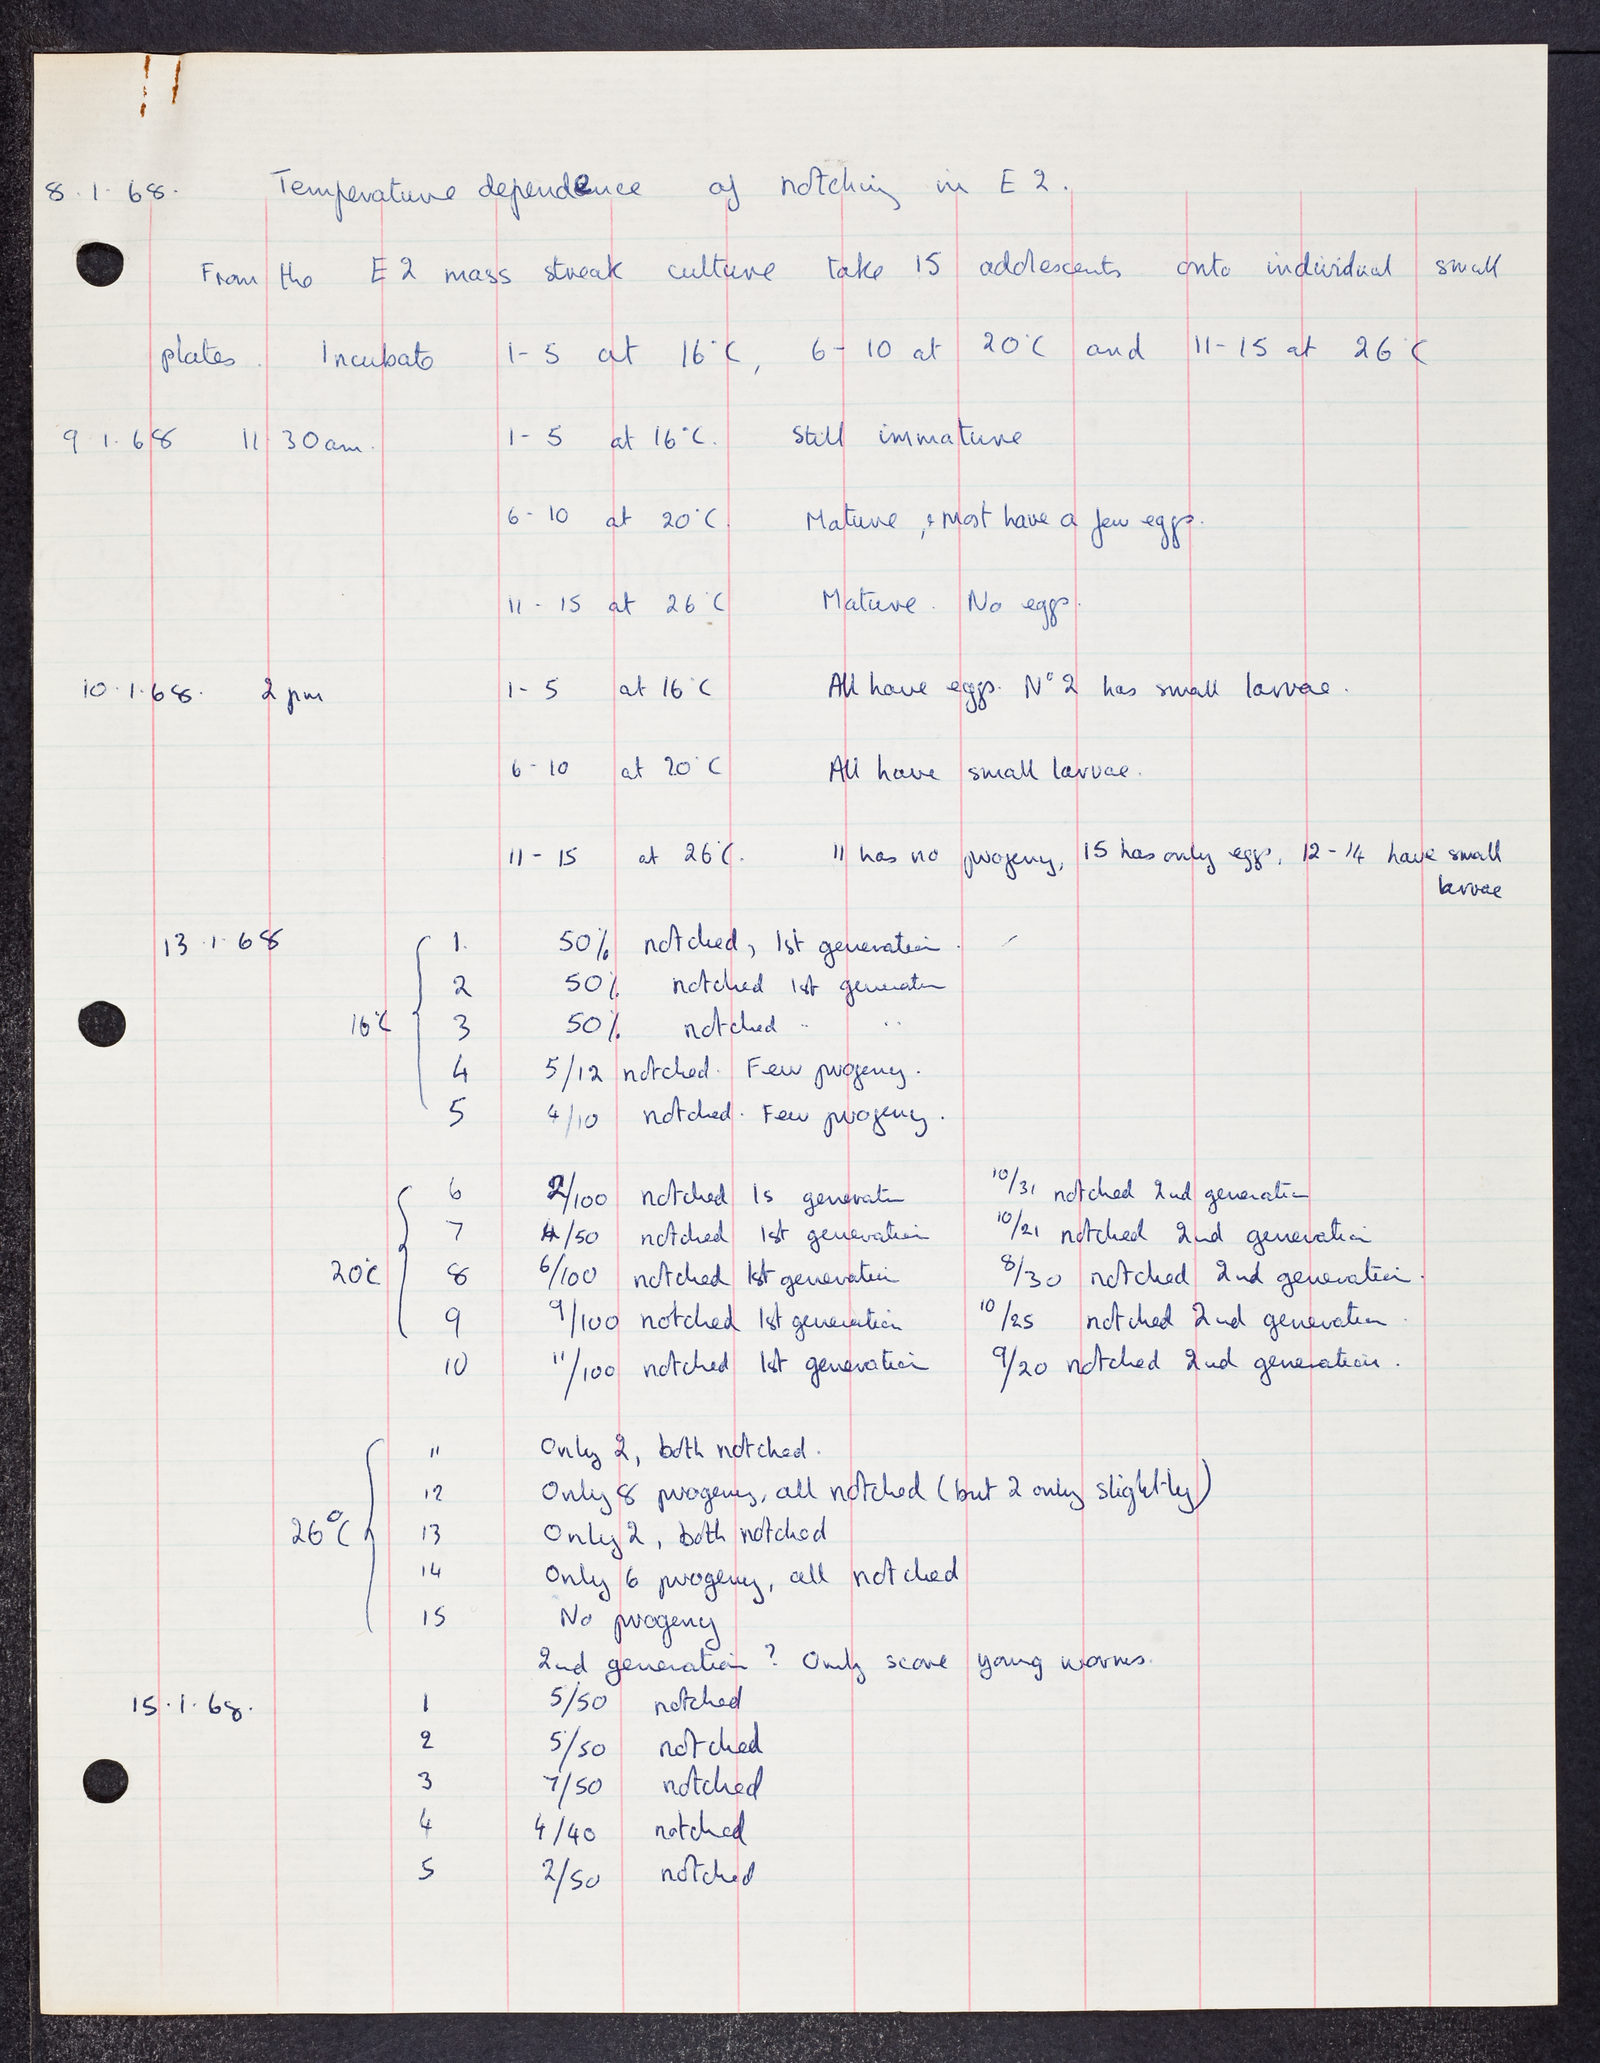 8.1.68. Temperature dependence of notching in E2.
From the E2 mass streak culture take 15 adolescents onto individual small
plates. Incubate 1-5 at 16°C, 6-10 at 20°C and 11-15 at 26°C
9.1.68 11.30am. 1-5 at 16°C. Still immature
6-10 at 20°C. Mature, & most have a few eggs.
11-15 at 26°C Mature. No eggs.
10.1.68. 2pm 1-5 at 16°C All have eggs. N°2 has small larvae.
6-10 at 20°C All have small larvae.
11-15 at 26°C. 11 has no progeny, 15 has only eggs, 12-14 have small
larvae
13.1.68 1. 50% notched, 1st generation.
2 50% notched 1st generation
16°C 3 50% notched " "
4 5/12 notched. Few progeny.
5 4/10 notched. Few progeny.
6 2/100 notched 1s generation 10/31 notched 2nd generation
7 4/50 notched 1st generation 10/21 notched 2nd generation
20°C 8 6/100 notched 1st generation 8/30 notched 2nd generation.
9 9/100 notched 1st generation 10/25 notched 2nd generation.
10 11/100 notched 1st generation 9/20 notched 2nd generation.
11 Only 2, both notched.
12 Only 8 progeny, all notched (but 2 only slightly)
26°C 13 Only 2, both notched
14 Only 6 progeny, all notched
15 No progeny
2nd generation? Only score young worms.
15.1.68. 1 5/50 notched
2 5/50 notched
3 7/50 notched
4 4/40 notched
5 2/50 notched